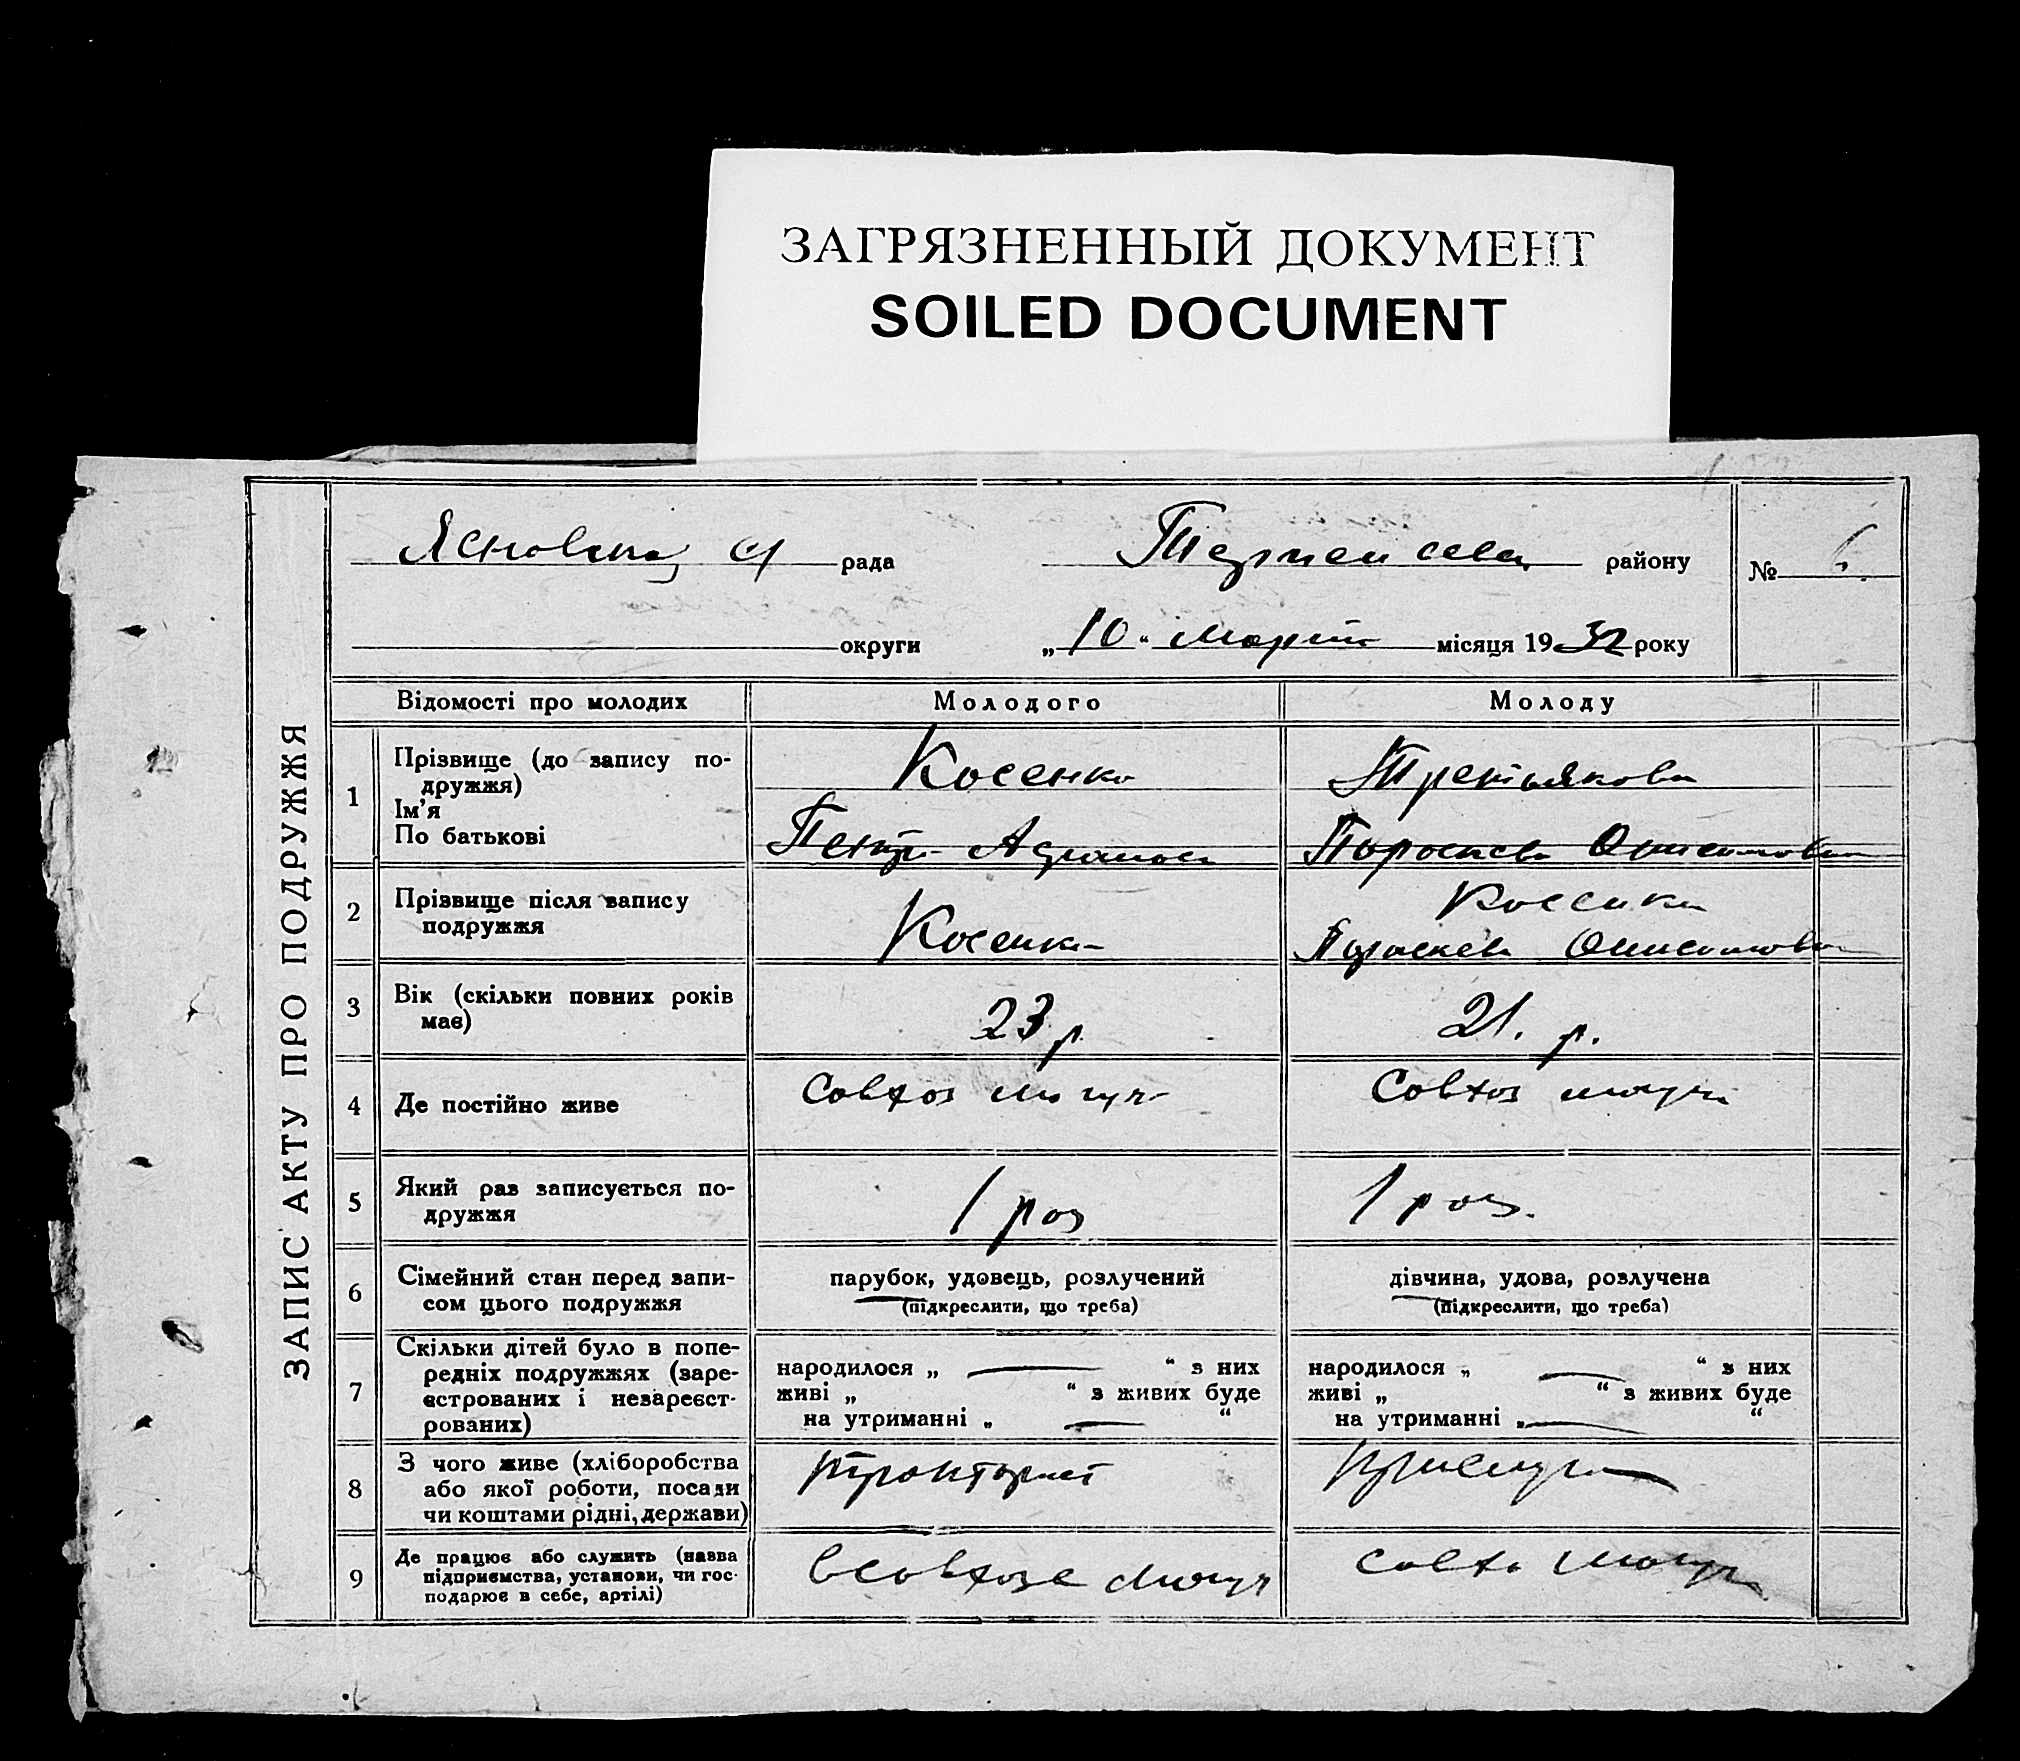 ЗАГРЯЗНЕННЫЙ ДОКУМЕНТ
SOILED DOCUMENT
ЗАПИС АКТУ ПРО ПОДРУЖЖЯ
рада району № 6.
округи „10“ Март місяця 1932 року
Відомості про молодих Молодого Молоду
1 Прізвище (до запису по-
дружжя)
Ім’я
По батькові
Косенко
Петр
Третьякова
2 Прізвище після запису
подружжя
Косенко
3 Вік (скільки повних років
має)
23 р
21. р.
4 Де постійно живе
Совхоз
Совхоз
5 Який раз записується по-
дружжя
1 раз
1 раз.
6 Сімейний стан перед запи-
сом цього подружжя
парубок, удовець, розлучений
(підкреслити, що треба)
дівчина, удова, розлучена
(підкреслити, що треба)
7 Скільки дітей було в попе-
редніх подружжях (заре-
єстрованих і незареєст-
рованих)
народилося „ — “ з них
живі „ “ з живих буде
на утриманні „ — “
народилося „ — “ з них
живі „ “ з живих буде
на утриманні „ — “
8 З чого живе (хліборобства
або якої роботи, посади
чи коштами рідні, держави)
тракторист
9 Де працює або служить (назва
підприємства, установи, чи гос-
подарює в себе, артілі)
в совхозе